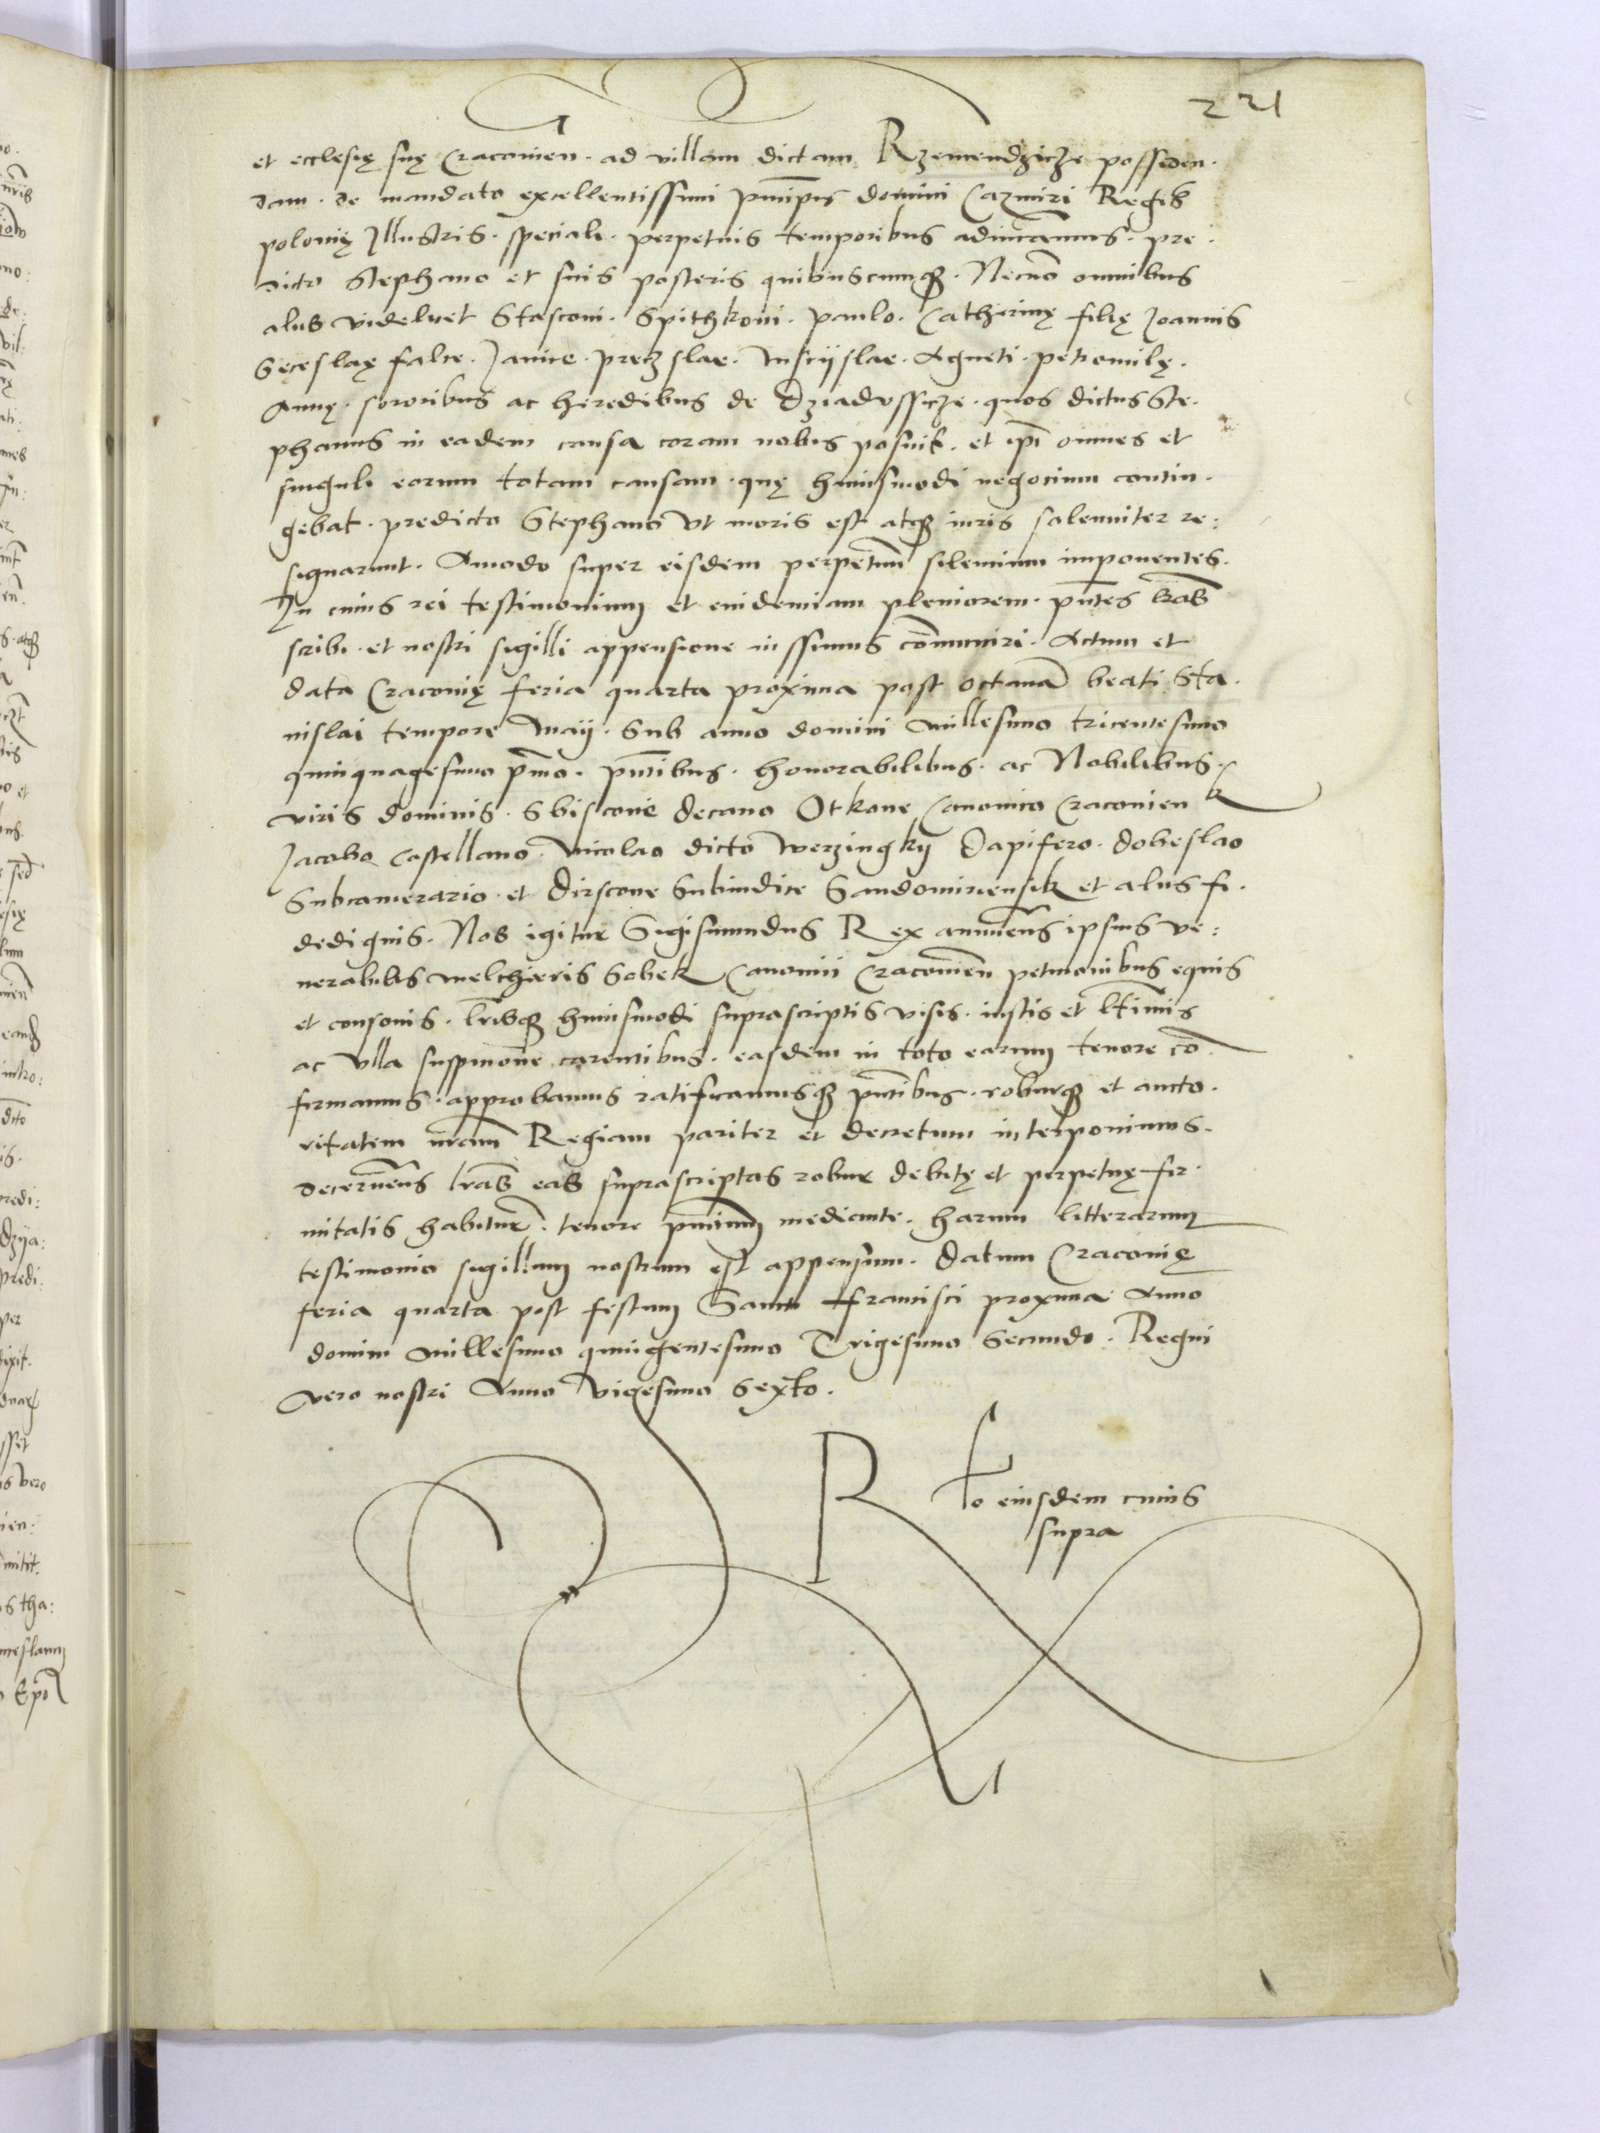 221
et ecclesię suę Cracovien. ad villam dictam Rzemendzicze possiden.
dam. de mandato excellentissimi principis domini Cazmiri Regis
polonię Illustris. speciali. perpetuis temporibus adiudicamus. pre.
dicto Stephano et suis posteris quibuscumq. Necno omnibus
aliis videlicet Stasconi. Spithkoni. paulo. Catherinę filię Joannis
Seceslaę falce. Janice. preczslae. Msciislae. Agneti. petromilę.
Annę. sororibus ac heredibus de Dziadossicze. quos dictus Ste.
phanus in eadem causa coram nobis posuit. et ipi omnes et
singuli eorum totam causam. quę huiusmodi negocium contin.
gebat. predicto Stephano ut moris est atq iuris solenniter re:
signarunt. Amodo super eisdem perpetuu silencium imponentes.
In cuius rei testimonium et evidenciam pleniorem. pntes lras
scribi. et nostri sigilli appensione iussimus comuniri. Actum et
data Cracovię feria quarta proxima post octava beati Sta.
nislai tempore Maij. Sub anno domini Millesimo tricentesimo
quinquagesimo pmo. pntibus. honorabilibus. ac Nobilibus.
viris dominis. Sbiscone decano Otkone Canonico Cracovien
Jacobo Castellano. Nicolao dicto werzingky Dapifero. dobeslao
Subcamerario. et Dirscone Subiudice Sandomiriensib et aliis fi.
dedignis. Nos igitur Sigismundus Rex annuens ipsius ve:
nerabilis Melchioris Sobek Canonici Cracovien petitionibus equis
et consonis. lrisq huiusmodi suprascriptis visis. iustis et ltimis
ac ulla suspicione carentibus. easdem in toto earum tenore co
firmamus. approbamus ratificamusq pntibus. roburq et aucto.
ritatem nram Regiam pariter et decretum interponimus.
decernens lras eas suprascriptas robur debitę et perpetuę fir.
mitatis habitur. tenore pntium mediante. harum litterarum
testimonio sigillum nostrum est appensum. Datum Cracovię
feria quarta post festum Sancti Francisci proxima Anno
domini Millesimo quingentesimo Trigesimo Secundo. Regni
vero nostri Anno Vigesimo Sexto.
R
lo eiusdem cuius
supra